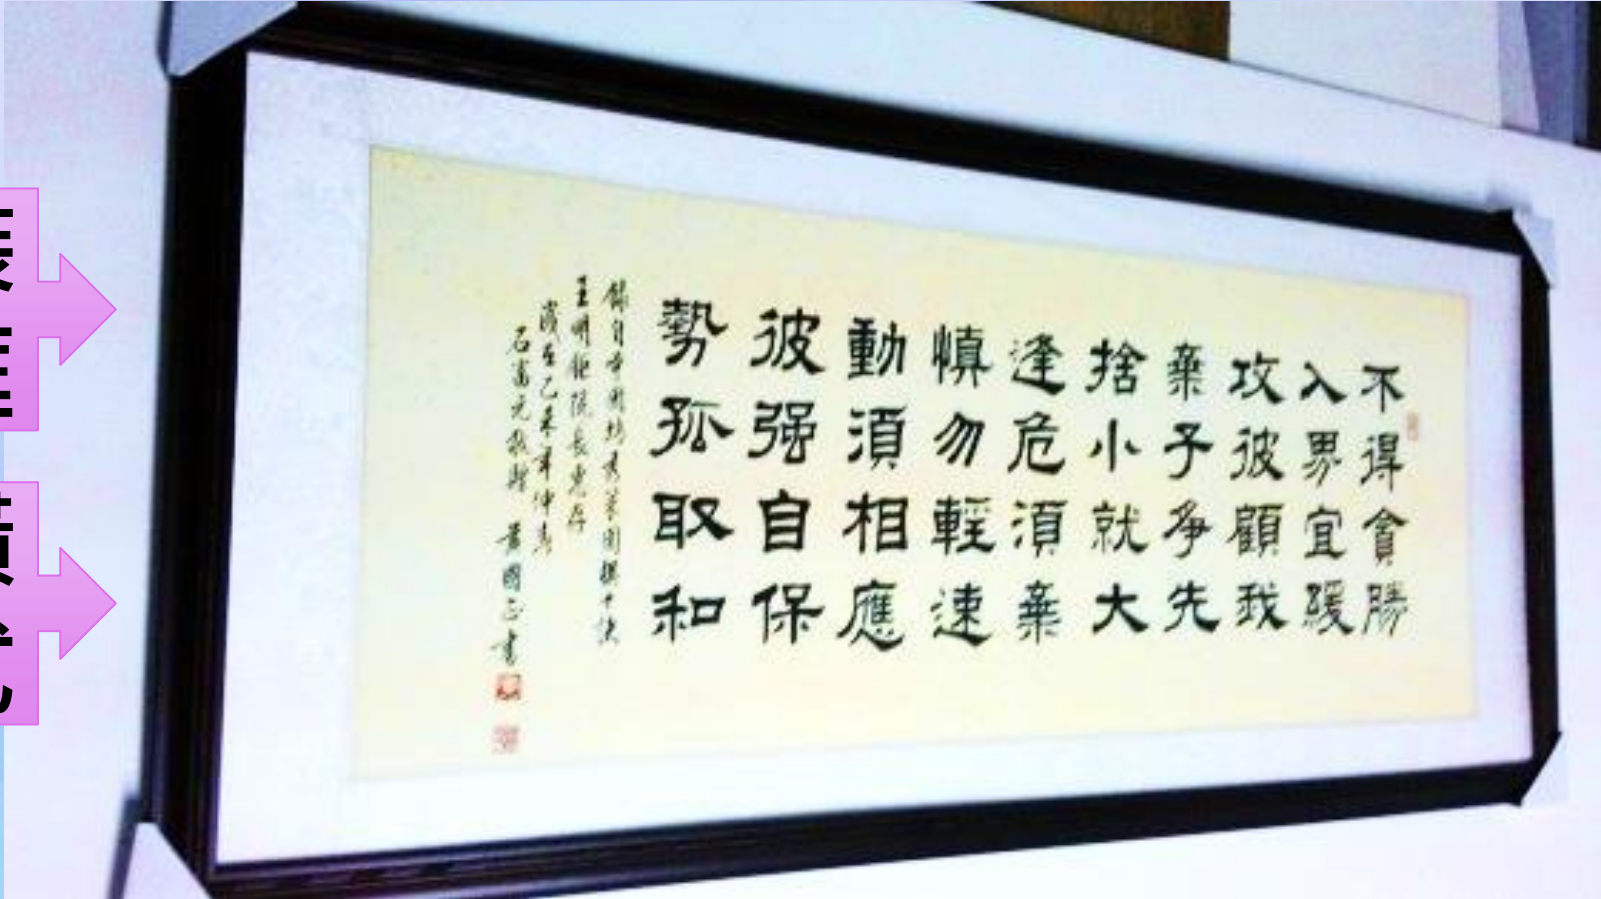 不得貪勝
入界宜緩
攻彼顧我
棄子爭先
捨小就大
逢危須棄
慎勿輕速
動須相應
彼强自保
勢孤取和
王明鉅院長惠存
歲在乙未年仲春
石富元敬贈 黃國正書